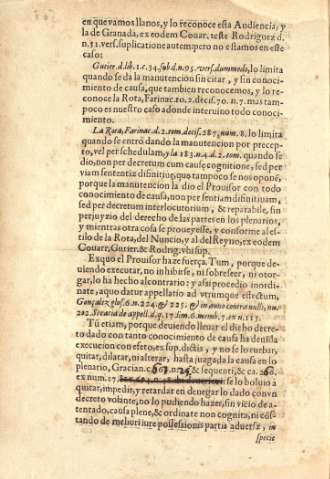 en que vamos llanos, y lo reconoce esta Audiencia, y
la de Granada, ex eodem Couar. teste Rodriguez d.
n. 51. vers. suplicatione autem pero no estamos en este
caso:
Gutier. d. lib. 1. c. 34. sub d. n. 95. vers. dummodo, lo limita
quando se dà la manutencion sin citar, y sin conoci-
miento de causa, que tambien reconocemos, y lo re-
conoce la Rota, Farinac. to. 2. decis. 70. n. 7. mas tam-
poco es nuestro caso adonde interuino todo conoci-
miento.
La Rota, Farinac. d. 2. tom. decis. 287, num. 8. lo limita
quando se entrò dando la manutencion por precep-
to, vel per schedulam, y la 183. n. 4. d. 2. tom. quando se
dio, non per decretum cum causę cognitione, sed per
viam sententię difinitiuę, que tampoco se nos opone,
porque la manutencion la dio el Prouisor con todo
conocimiento de causa, non per sentiam difinitiuam,
sed per decretum interlocutorium, & reparabile, sin
perjuyzio del derecho de las partes en los plenarios,
y mientras otra cosa se proueyesse, y conforme al es-
tilo de la Rota, del Nuncio, y al del Reyno, ex eodem
Couarr. Gutier. & Rodrig. vbi sup.
Ex quo el Prouisor haze fuerça. Tum, porque de-
uiendo executar, no inhibirse, ni sobreseer, ni otor-
gar, lo ha hecho al contrario: y assi procedio inordi-
nate, aquo datur appellatio ad vtrumque efectum,
Gonçalez glos. 6. n. 224. & 225. & in annot contra nulli, nu.
202. Scacia de appell. d. q. 17. lim. 6. memb. 7. n. 117.
Tũ etiam, porque deuiendo lleuar el dicho decre-
to dado con tanto conocimiento de causa ha deuida
execucion con efeto, ex sup. dictis, y no se lo turbar,
quitar, dilatar, ni alterar, hasta juzgada la causa en lo
plenario, Gracian. c. 607. n. 25 & sequenti, & ca. 260.
ex num. 17. se lo boluio à
quitar, impedir, y retardar en denegar lo dado con vn
decreto volante, no lo pudiendo hazer, sin vicio de a-
tentado, causa plene, & ordinate non cognita, ni cos-
tando de meliori iure possessionis partis aduersę, in
specie